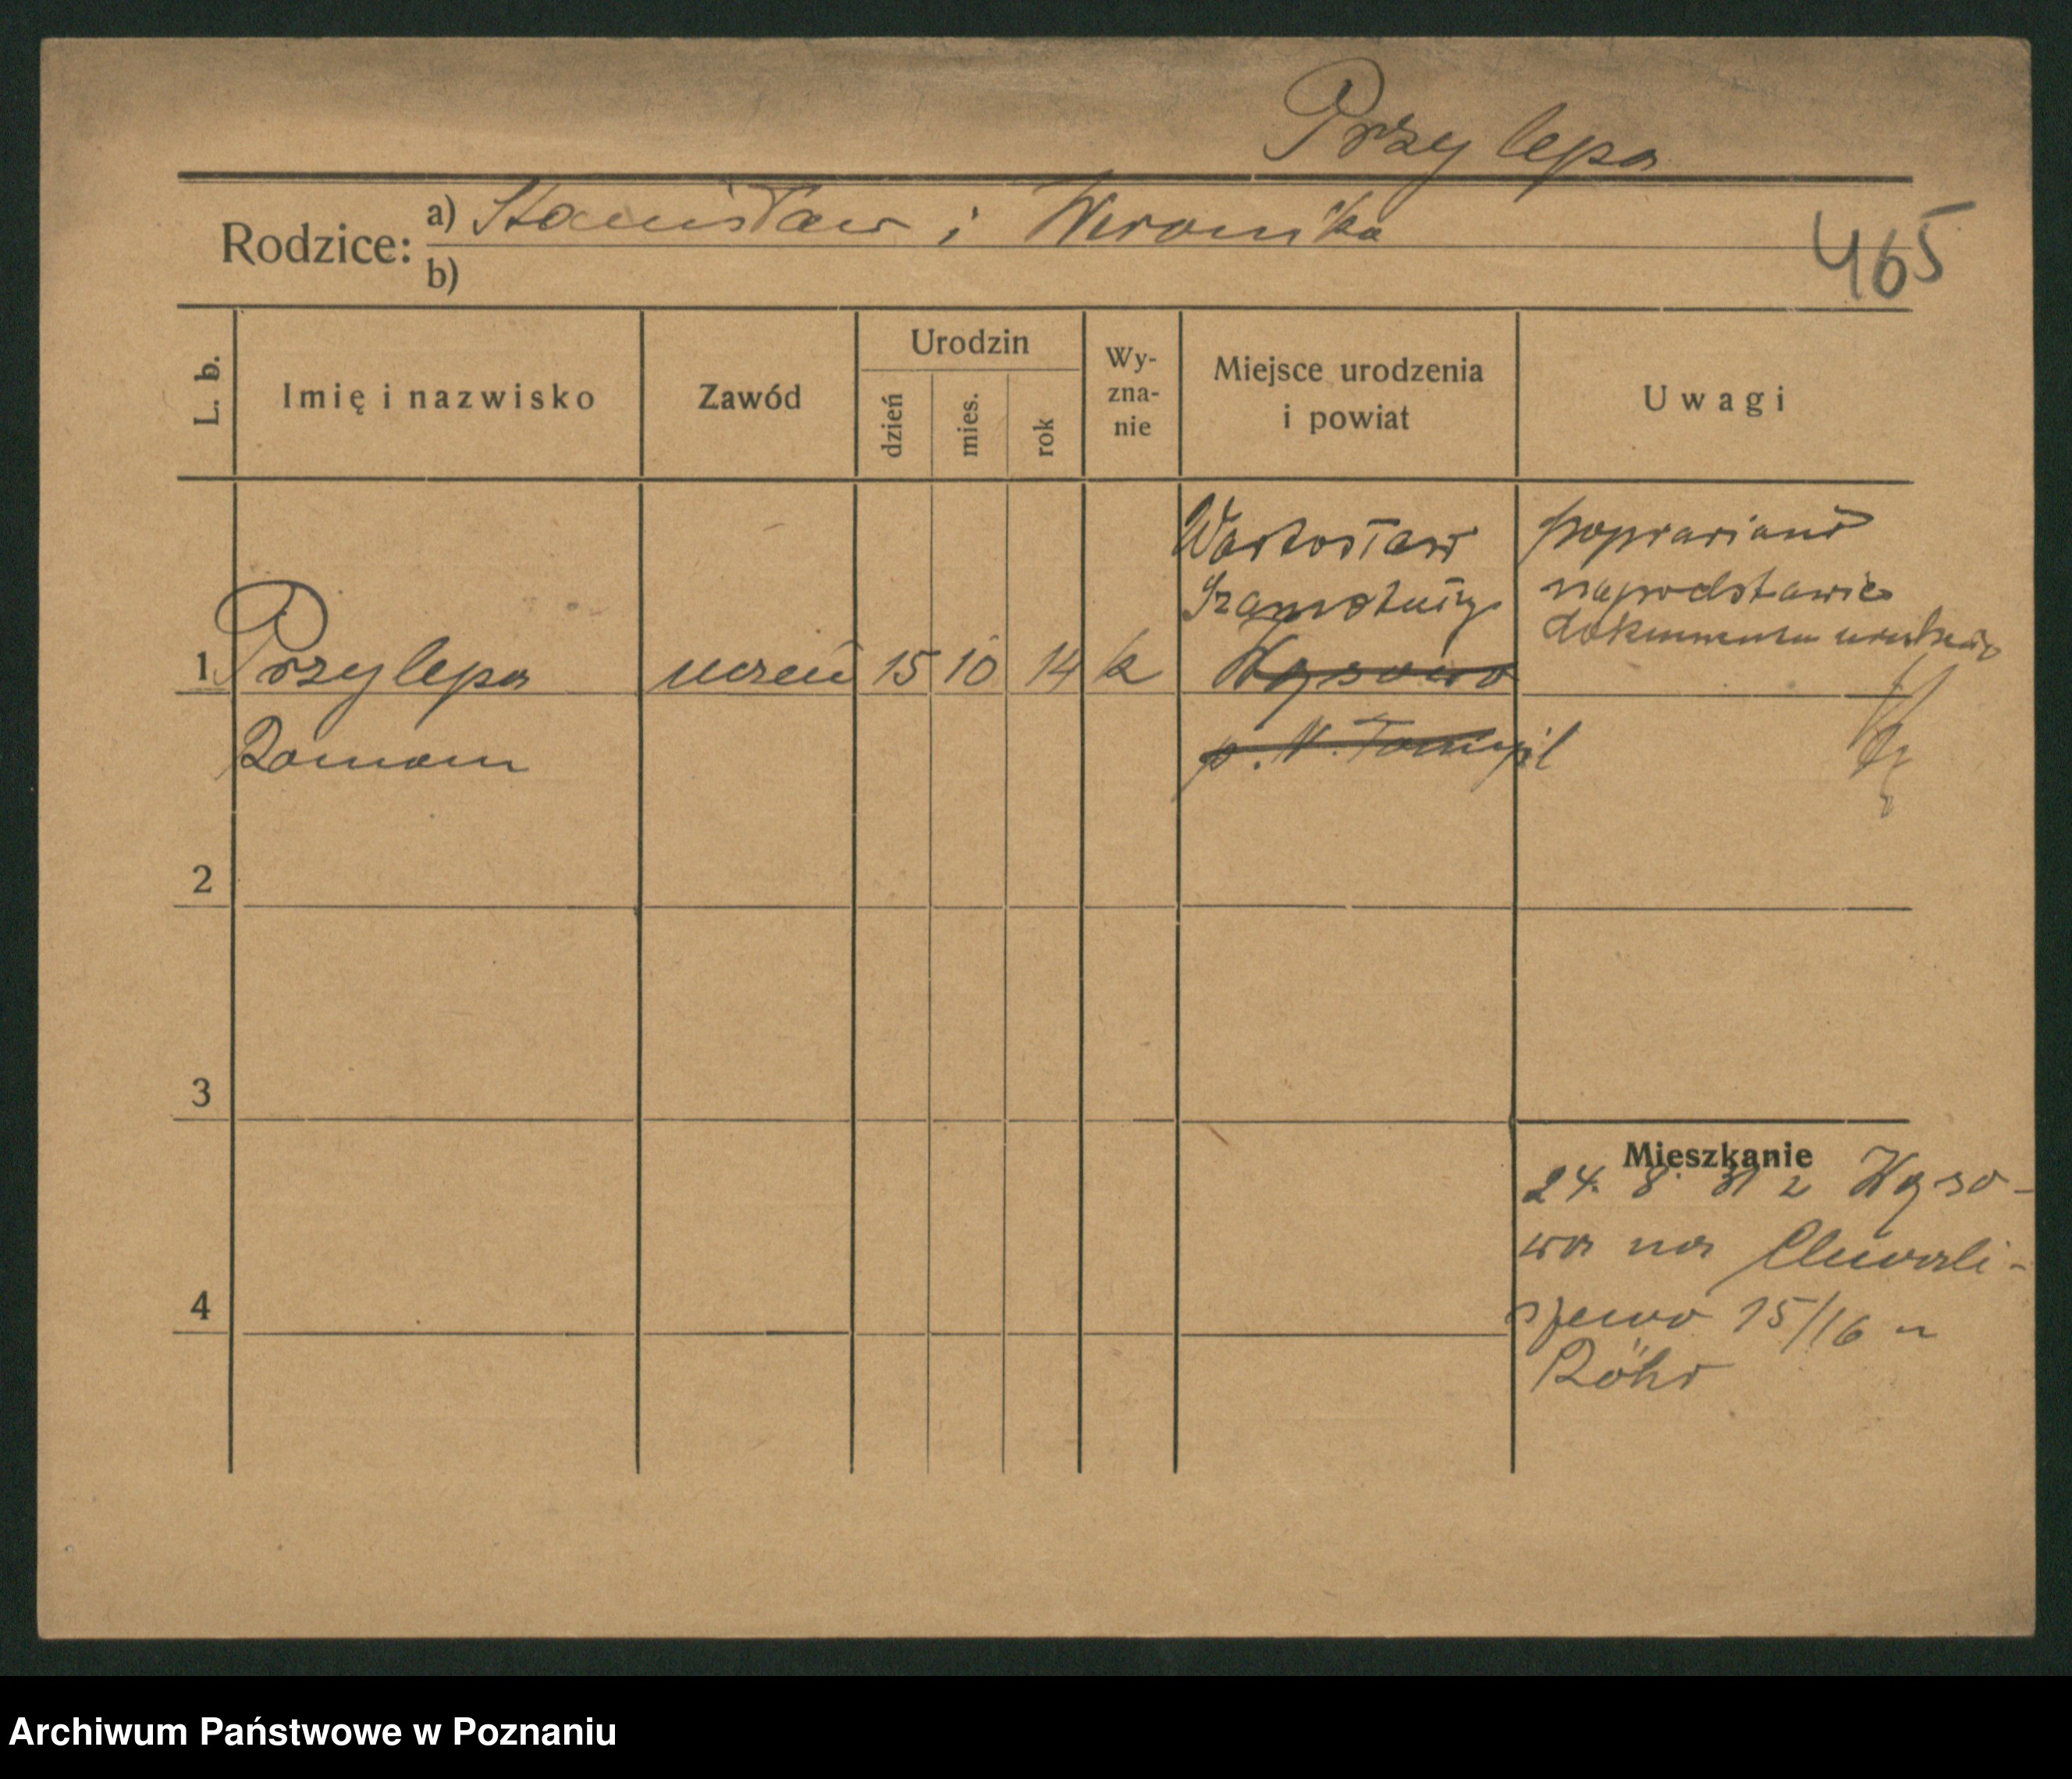 Przylepa
Rodzice: a) Stanisław i Weronika
b)
465
L. b.
Imię i nazwisko
Zawód
Urodzin
dzień
mies.
rok
Wy-
zna-
nie
Miejsce urodzenia
i powiat
Uwagi
Wartosław
Szamotuły
poprawiono
na podstawie
dokumentu urodzenia
1 Przylepa uczeń 15 10 14 k
Roman
p. N. Tomyśl
2
3
4
Mieszkanie
24. 8. 31 z
wa na Chwali-
szewo 15/16 u
Röhr
Archiwum Państwowe w Poznaniu